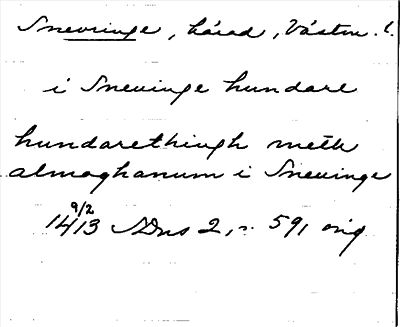 Snevringe, härad, Västm. l.
i Sneuinge hundare
hundarethingh meth
almoghanum i Sneuinge
9/2
1413 SDns 2, n. 591 orig